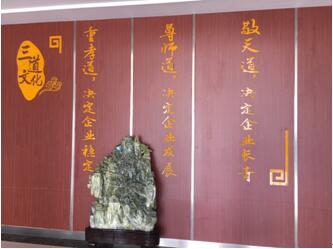 三道
文化
敬天道，决定企业长青
尊师道，决定企业发展
重孝道，决定企业稳定